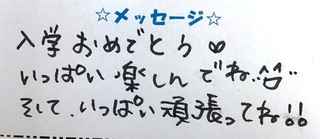 ☆メッセージ☆
入学おめでとう♡
いっぱい楽しんでね^^
そして、いっぱい頑張ってね!!